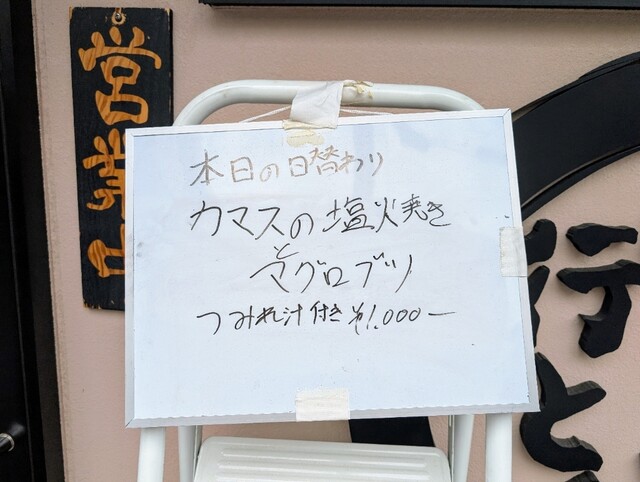 営業中
本日の日替わり
カマスの塩焼き
と
マグロブツ
つみれ汁付き ¥1,000ー
行
と